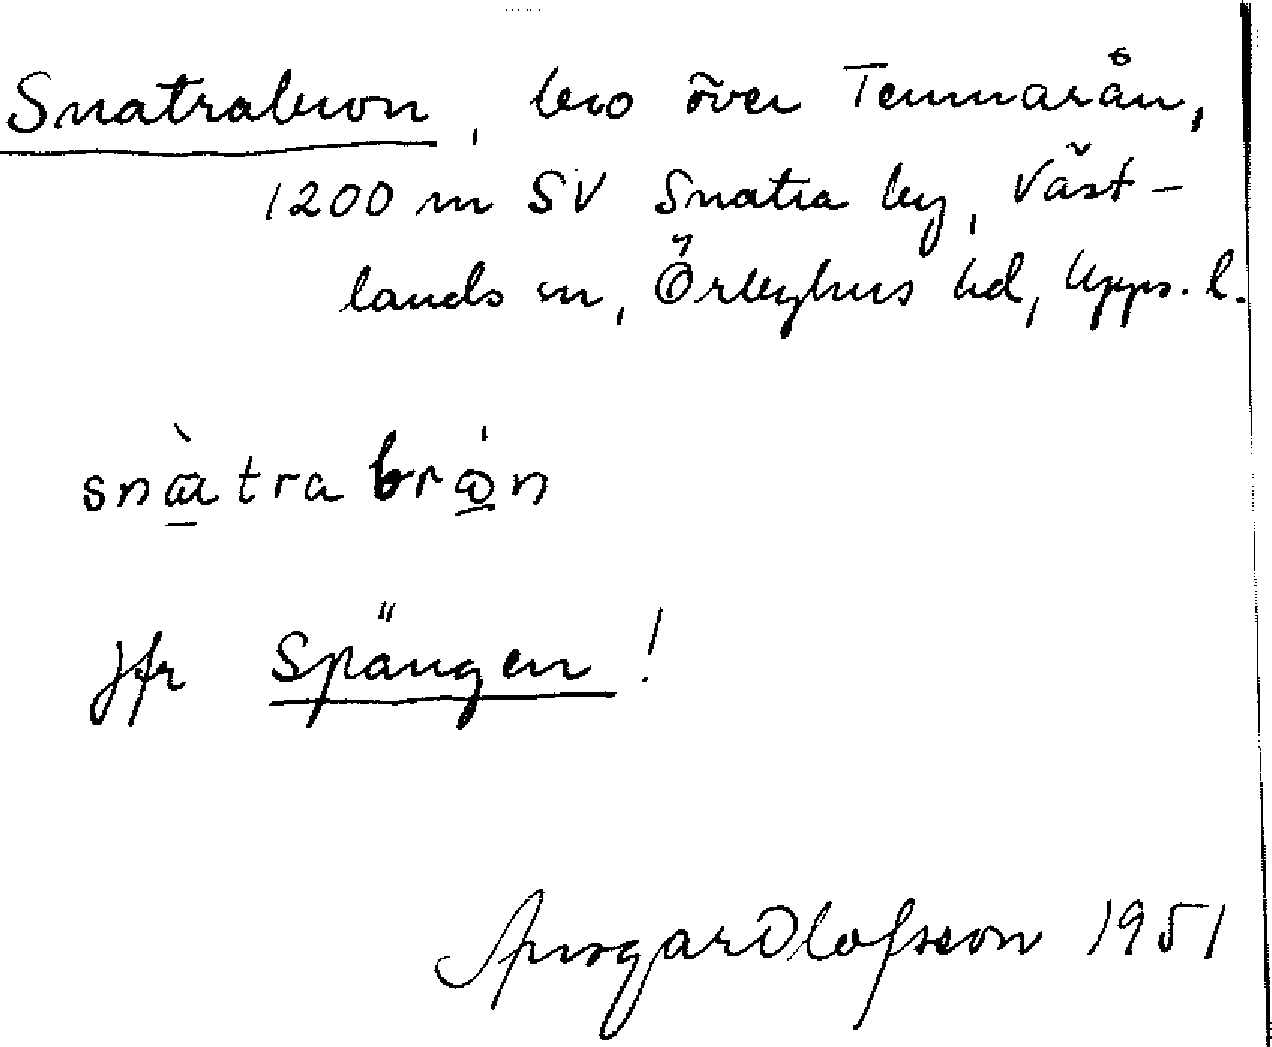 Snatrabron, bro över Temnarån,
1200 m SV Snatra by, Väst-
lands sn, Örbyhus hd, Upps. l.
snàtra brón
Jfr Spängen!
Ansgar Olofsson 1951